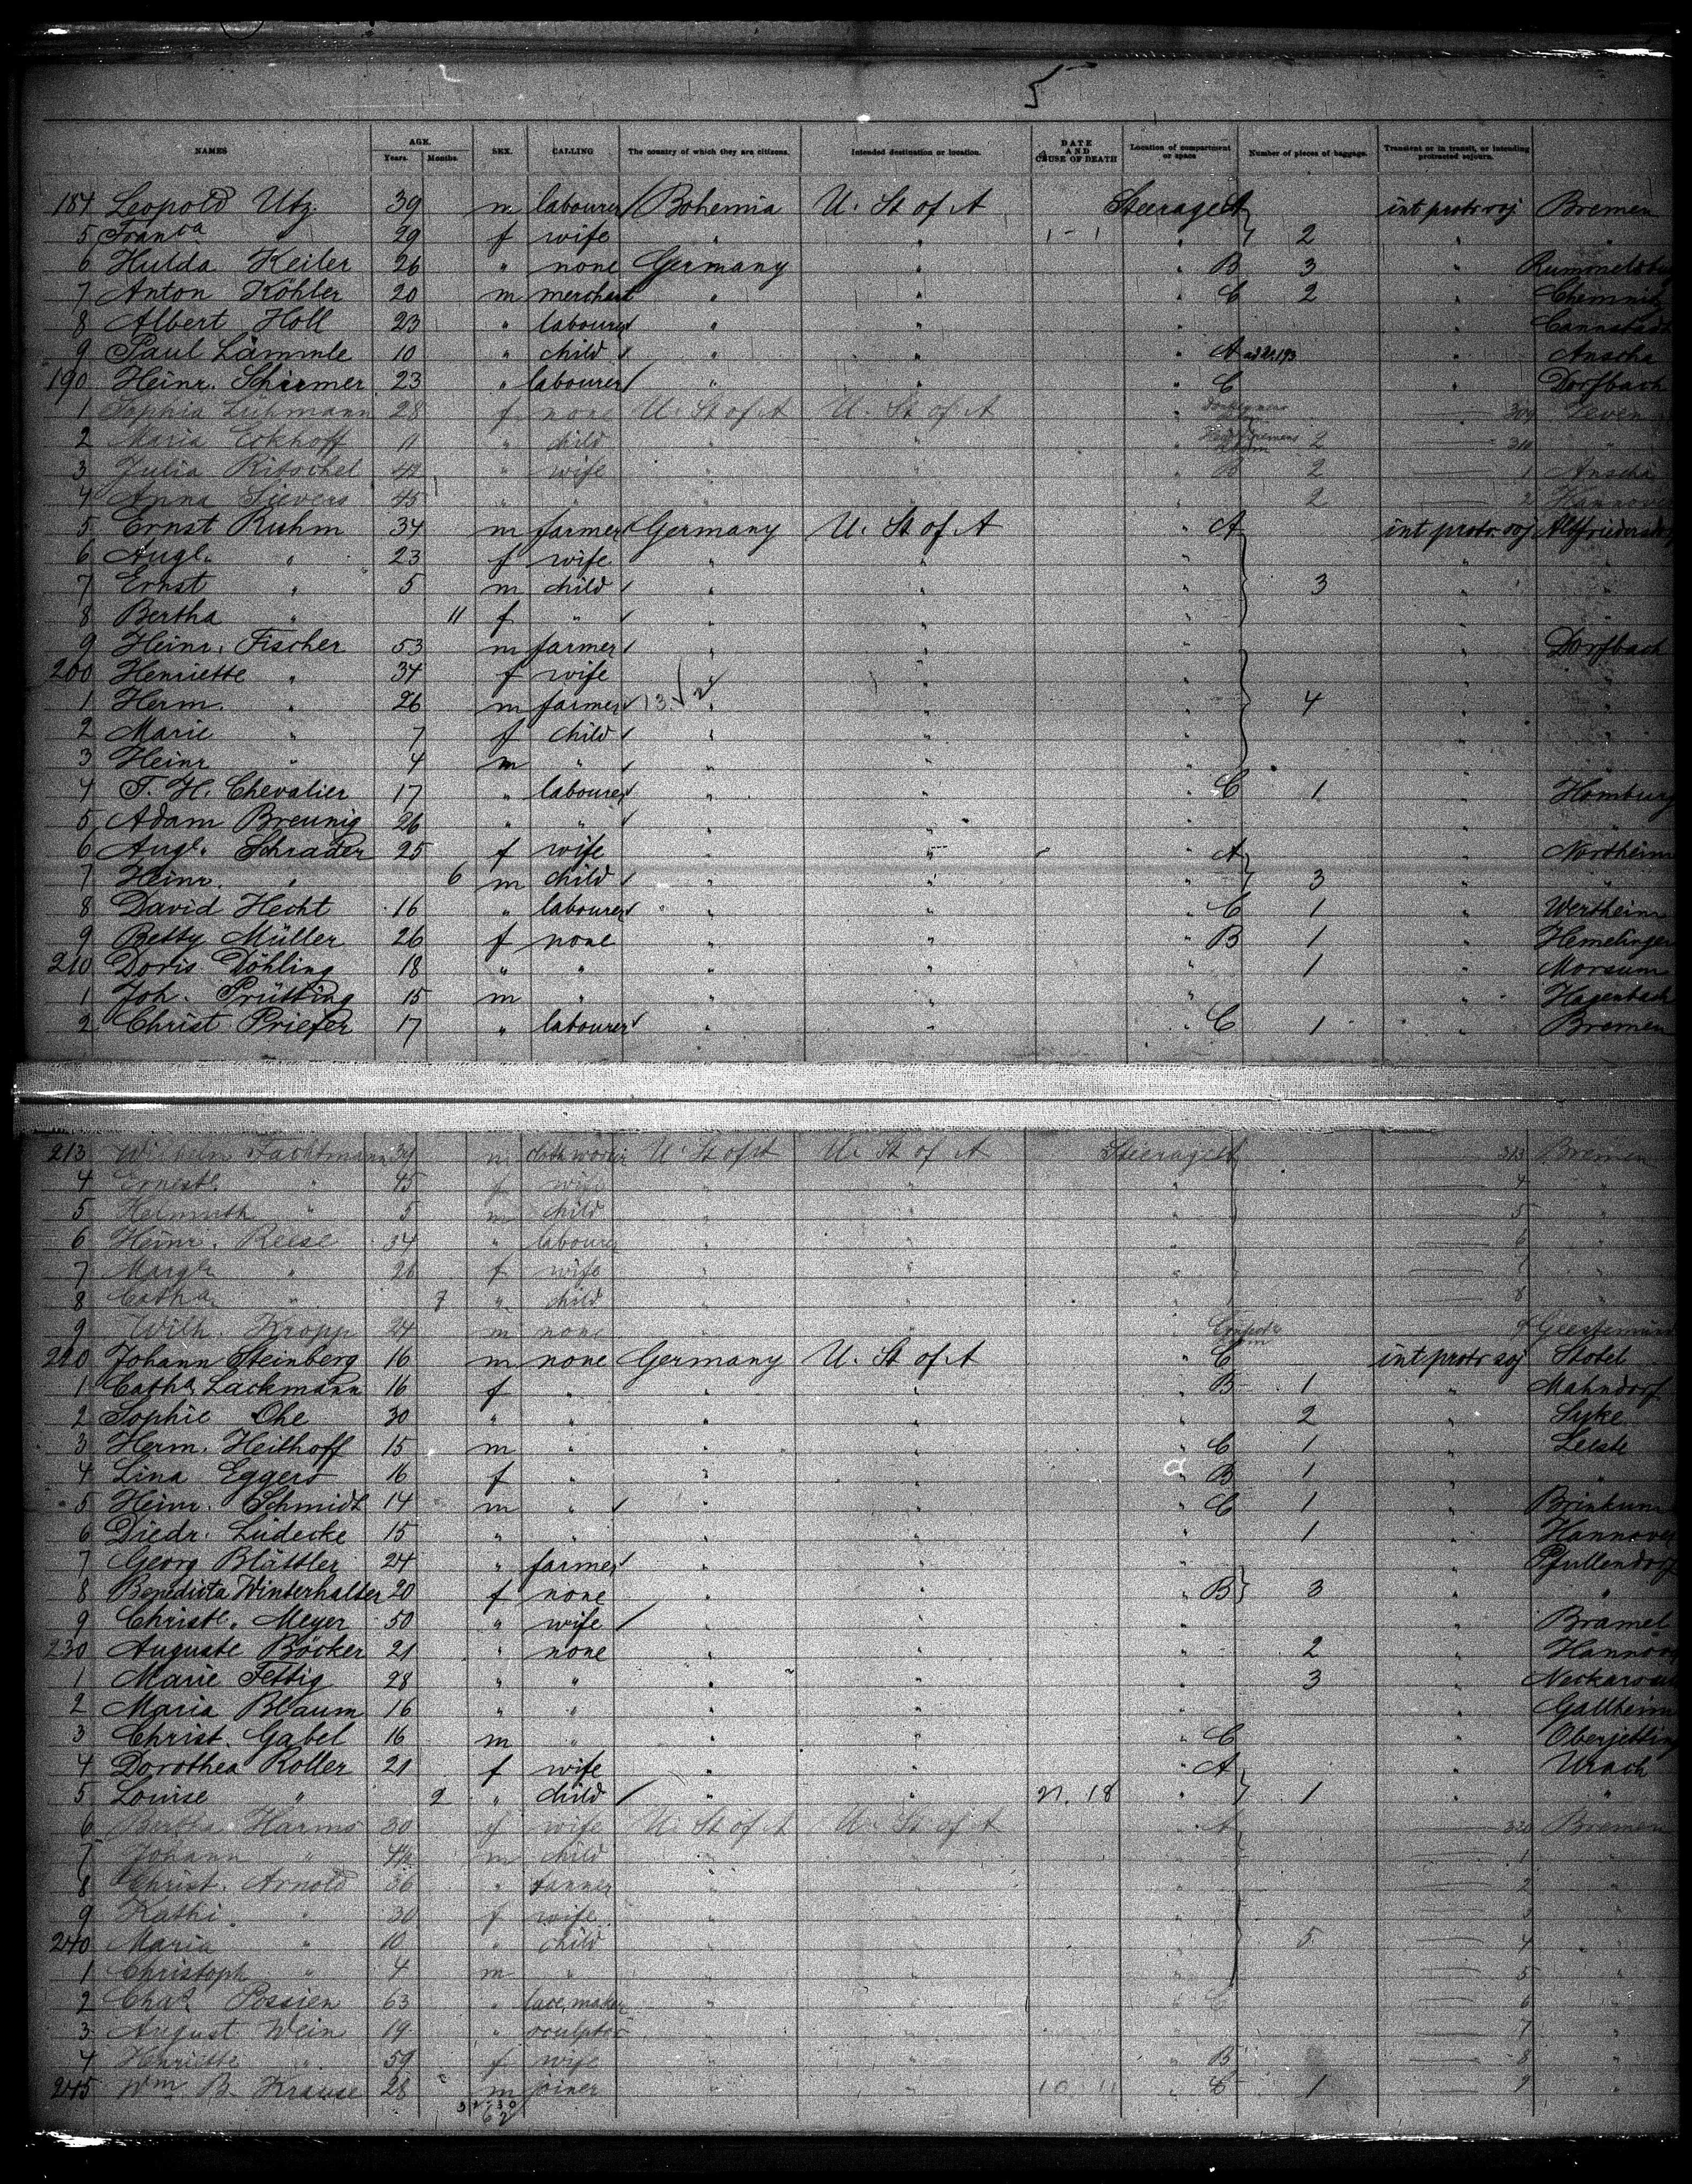 5
NAMES AGE. Years. Months. SEX. CALLING The country of which they are citizens. Intended destination or location. DATE AND CAUSE OF DEATH Location of compartment or space Number of pieces of baggage. Transient or in transit, or intending protracted sojourn.
184 Leopold Utz 39 m labourer Bohemia U. St of A Steerage A int protr soj Bremen
5 Franca " 29 f wife " " 1 - 1 " 2 " "
6 Hulda Keiler 26 " none Germany " " B 3 "
7 Anton Köhler 20 m merchant " " " C 2 " Chemnitz
8 Albert Holl 23 " labourer " " Cannstadt
9 Paul Lämmle 10 " child " " " A ad 2193 " Anscha
190 Heinr. Schirmer 23 " labourer " " " C " Dorfbach
1 Sophia Lührmann 28 f none U. St of A U. St of A " 309 Zeven
2 Maria Eckhoff 11 " child " " " 2 310 "
3 Julia Ritschel 42 " wife " " " B 2 1 Anscha
4 Anna Sievers 45 " " " " 2 2 Hannover
5 Ernst Ruhm 34 m farmer Germany U. St of A " A int protr. soj
6 Augle. " 23 f wife " " " " "
7 Ernst " 5 m child " " " 3 " "
8 Bertha " 11 f " " " " " "
9 Heinr. Fischer 53 m farmer " " " " Dorfbach
200 Henriette " 34 f wife " " " " "
1 Herm. " 26 m farmer 13 " " " 4 " "
2 Marie " 7 f child " " " " "
3 Heinr " 4 m " " " " " "
4 T. H. Chevalier 17 " labourer " " " C 1 " Homburg
5 Adam Breunig 26 " " " " " " "
6 Augle. Schrader 25 f wife " " " A " Northeim
7 Heinr. " 6 m child " " " 3 " "
8 David Hecht 16 " labourer " " " C 1 " Wertheim
9 Betty Müller 26 f none " " " B 1 " Hemelingen
210 Doris Döhling 18 " " " " " 1 " Morsum
1 Joh. Prütting 15 m " " " " " Hagenbach
2 Christ Priefer 17 " labourer " " " C 1 " Bremen
213 Fachtmann 39 m U. St of A U. St of A Steerage A 313 Bremen
4 Ernestle. " 45 f wife " " " 4 "
5 Helmuth " 5 m child " " " 5 "
6 Heinr. Reese 34 " labourer " " " 6 "
7 Margle " 26 f wife " " " 7 "
8 Catha. " 7 " child " " " 8 "
9 Wilh. Kropp 24 m none " " " 9 Geestemünde
220 Johann Steinberg 16 m none Germany U. St of A " C int protr soj Stotel
1 Catha. Lackmann 16 f " " " " B 1 " Mahndorf
2 Sophie Ohe 30 " " " " " 2 " Syke
3 Herm. Heithoff 15 m " " " " C 1 " Leeste
4 Lina Eggers 16 f " " " " B 1 " "
5 Heinr. Schmidt 14 m " " " " C 1 " Brinkum
6 Diedr. Lüdecke 15 " " " " " 1 " Hannover
7 Georg Blättler 24 " farmer " " " " Pfullendorf
8 Benedicta Winterhalter 20 f none " " " B 3 " "
9 Christe. Meyer 50 " wife " " " " Bramel
230 Auguste Böcker 21 " none " " " 2 " Hannover
1 Marie Fettig 28 " " " " " 3 " Neckarsulm
2 Maria Blaum 16 " " " " " "
3 Christ. Gabel 16 m " " " " C " Oberjetting
4 Dorothea Roller 21 f wife " " " A " Urach
5 Louise " 2 " child " " 21. 18 " 1 " "
6 Bertha Harms 30 f wife U. St of A U. St of A " A 320 Bremen
7 Johann " m child " " " 1 "
8 Christ. Arnold 36 " tanner " " " 2 "
9 Kathi. " 30 f wife " " " 3 "
240 Maria " 10 " child " " " 5 4 "
1 Christoph " 4 m " " " " 5 "
2 Chas. Possien 63 " lace maker " " " C 6 "
3 August Wein 19 " sculptor " " " 7 "
4 Henriette " 59 f wife " " " B 8 "
245 Wm. B. Krause 28 m joiner " " 10 11 " C 1 9 "
32 - 30
62